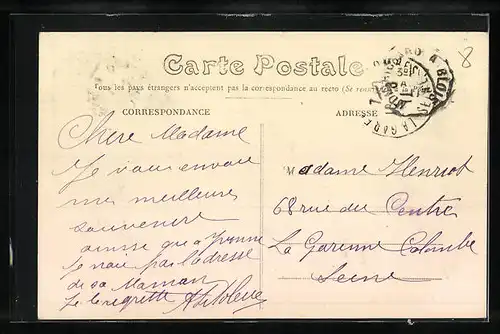 8
Carte Postale
Tous les pays étrangers n'acceptent pas la correspondance au recto (Se
CORRESPONDANCE
ADRESSE
LA GARE
A BLOIS
Chere Madame
Je vous envoie
mes meilleures
souvenirs
ainsse qu a Yvonne
Je naie pas l'adresse
de sa Maman
Je le regrette
Madame Henriot
68 rue du Centre
La Garenne Colombe
Seine